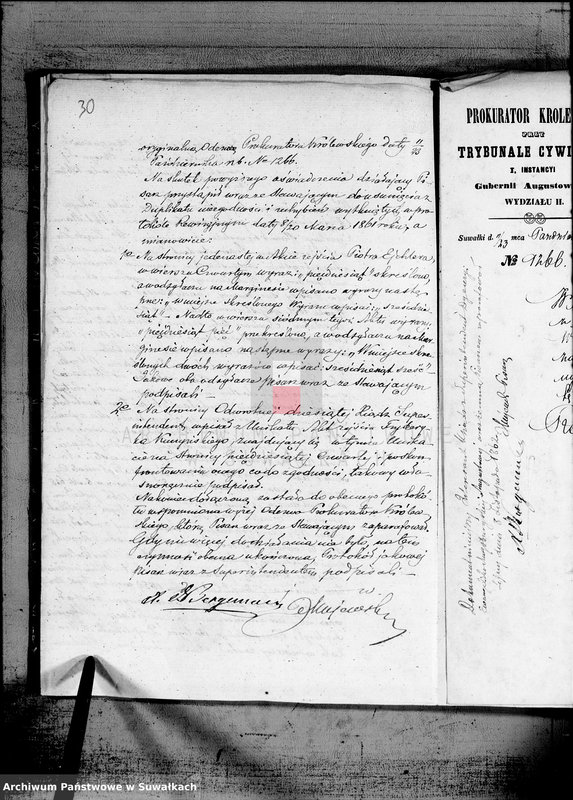 30
oryginalną Odezwą Prokuratora Królewskiego daty 11/23
Października r.b. No 1266.
Na skutek powyższego oświadczenia działający Pi
sarz przystąpił wraz ze Stawającym do usunięcia z
Duplikatu niezgodności i uchybień wytkniętych w pro
tokóle Rewizyjnym daty 8/20 Marca 1861 roku, a
mianowicie:
1o Na stronicy jedenastej w akcie zejścia Piotra
w wierszu Czwartym wyraz: "pięćdziesiąt" skreślono,
a w odsyłaczu na Marginesie wpisano wyrazy nastę
pne: "w miejsce skreślonego Wyrazu wpisać: sześćdzie
siąt" - Nadto w wierszu siódmym tegoż Aktu wyrazy
"pięćdziesiąt pięć" przekreślono, a w odsyłaczu na Mar
ginesie wpisano następne wyrazy: "W miejsce skre
ślonych dwóch wyrazów wpisać: sześćdziesiąt sześć"
Takowe oba odsyłacze Pisarz wraz ze Stawającym
podpisali
2o Na stronicy Odwrotnej dziesiątej Ksiądz Super
intendent wpisał z Unikatu Akt zejścia Frydery
ka znajdujący się w tymże Unika
cie na Stronicy pięćdziesiątej Czwartej i po skon
frontowaniu onego co do zgodności, takowy wła
snoręcznie podpisał.
Nakoniec dołączoną została do obecnego protokó
łu wspomniona wyżej Odezwa Prokuratora Królew
skiego, którą Pisarz wraz ze Stawającym zaparafował.
Gdy nic więcej do działania nie było, na tem
czynność obecna ukończoną, Protokół takowy
Pisarz wraz z Superintendentem podpisali -
Bergmann Majewski
PROKURATOR KRÓLE
PRZY
TRYBUNALE CYWI
I. INSTANCYI
Gubernii Augustow
WYDZIAŁU II.
Suwałki d. 11/23 mca Paździer
No 1266.
Majewski Pisarz
Bergmann
Archiwum Państwowe w Suwałkach